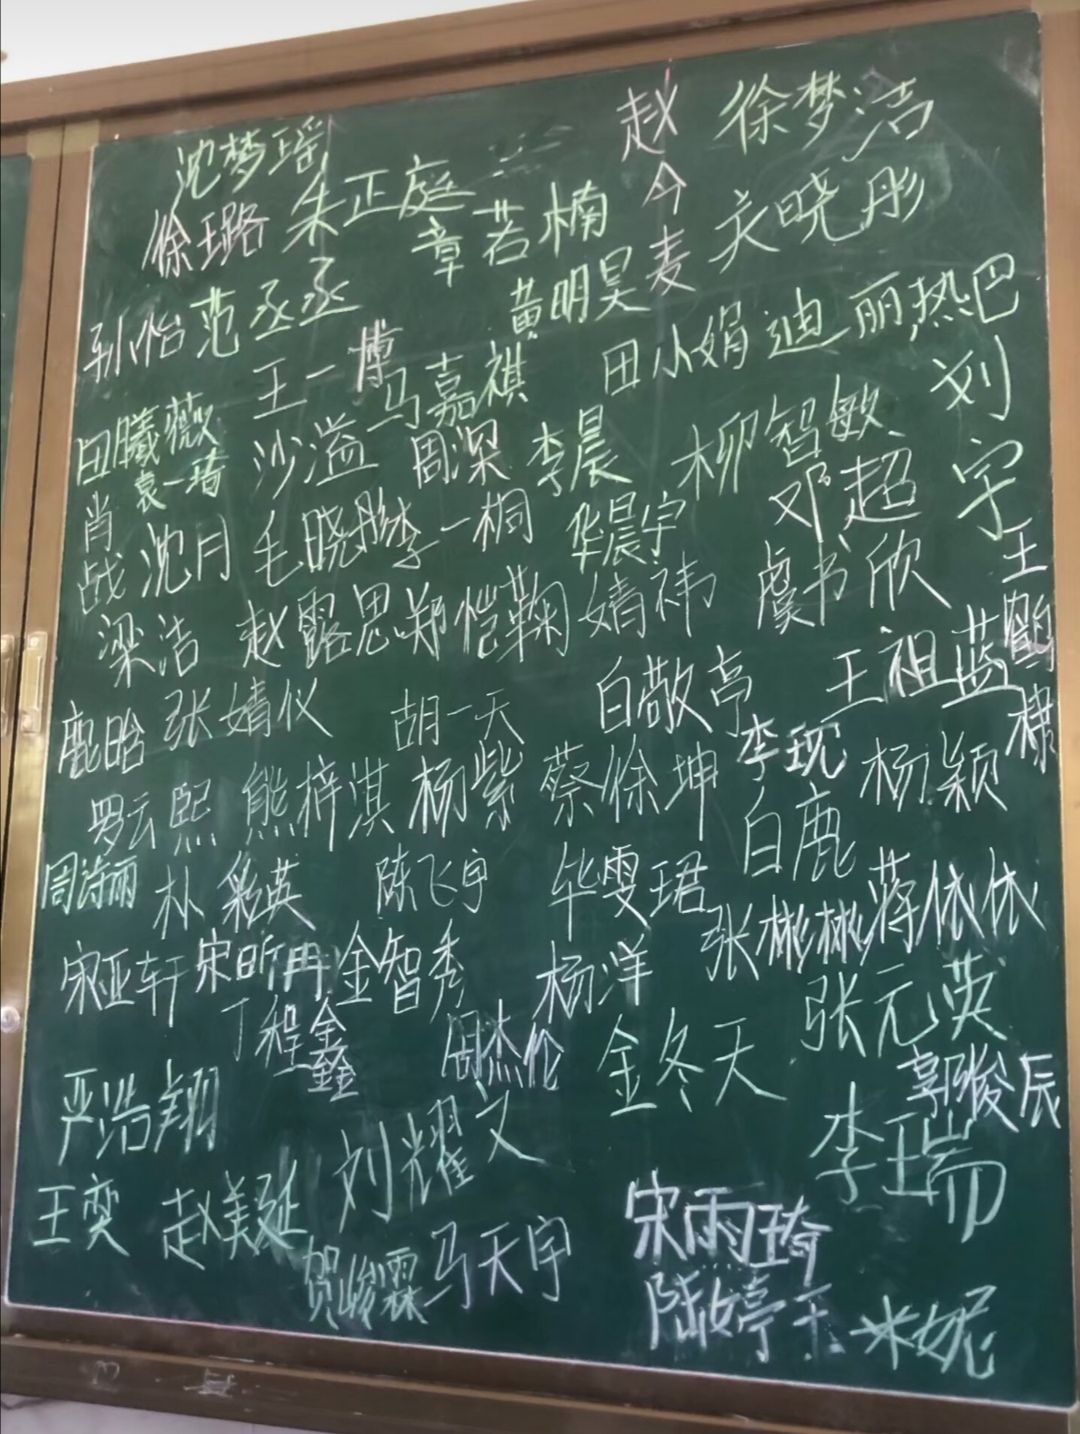 沈梦瑶
赵今麦
徐梦洁
徐璐
朱正庭
章若楠
关晓彤
孙怡
范丞丞
黄明昊
迪丽热巴
王一博
马嘉祺
田小娟
刘宇
田曦薇
袁一琦
沙溢
周深
李晨
柳智敏
肖战
沈月
毛晓彤
李一桐
华晨宇
邓超
王鹤棣
梁洁
赵露思
郑恺
鞠婧祎
虞书欣
鹿晗
张婧仪
胡一天
白敬亭
王祖蓝
罗云熙
熊梓淇
杨紫
蔡徐坤
李现
杨颖
周诗雨
朴彩英
陈飞宇
毕雯珺
白鹿
宋亚轩
宋昕冉
金智秀
杨洋
张彬彬
蒋依依
丁程鑫
周杰伦
金冬天
张元英
严浩翔
刘耀文
郭俊辰
李瑞
王奕
赵美延
贺峻霖
马天宇
宋雨琦
陆婷
米妮